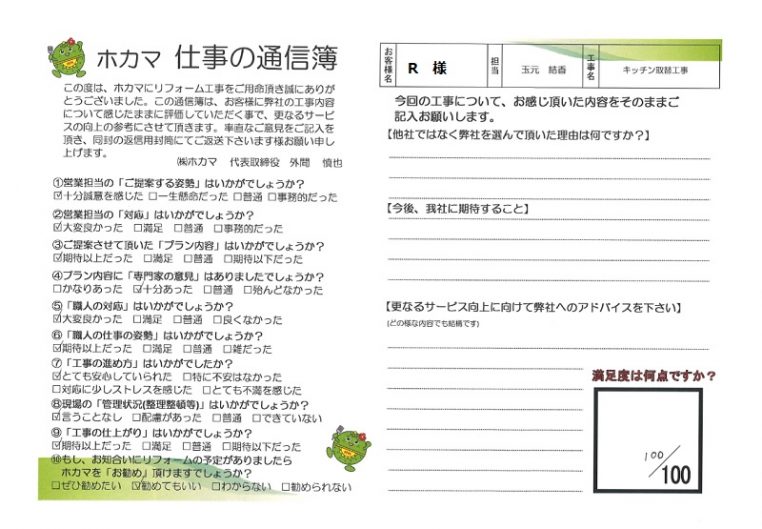 ホカマ 仕事の通信簿
この度は、ホカマにリフォーム工事をご用命頂き誠にありが
とうございました。この通信簿は、お客様に弊社の工事内容
について感じたままに評価していただく事で、更なるサービ
スの向上の参考にさせて頂きます。率直なご意見をご記入を
頂き、同封の返信用封筒にてご返送下さいます様お願い申し
上げます。
㈱ホカマ 代表取締役 外間 慎也
①営業担当の「ご提案する姿勢」はいかがでしょうか?
☑十分誠意を感じた □一生懸命だった □普通 □事務的だった
②営業担当の「対応」はいかがでしょうか?
☑大変良かった □満足 □普通 □事務的だった
③ご提案させて頂いた「プラン内容」はいかがでしょうか?
☑期待以上だった □満足 □普通 □期待以下だった
④プラン内容に「専門家の意見」はありましたでしょうか?
□かなりあった ☑十分あった □普通 □殆んどなかった
⑤「職人の対応」はいかがでしょうか?
☑大変良かった □満足 □普通 □良くなかった
⑥「職人の仕事の姿勢」はいかがでしょうか?
☑期待以上だった □満足 □普通 □雑だった
⑦「工事の進め方」はいかがでしたか?
☑とても安心していられた □特に不安はなかった
□対応に少しストレスを感じた □とても不満を感じた
⑧現場の「管理状況(整理整頓等)」はいかがでしょうか?
☑言うことなし □配慮があった □普通 □できていない
⑨「工事の仕上がり」はいかがでしょうか?
☑期待以上だった □満足 □普通 □期待以下だった
⑩もし、お知合いにリフォームの予定がありましたら
ホカマを「お勧め」頂けますでしょうか?
□ぜひ勧めたい ☑勧めてもいい □わからない □勧められない
お客様名 R 様 担当 玉元 結香 工事名 キッチン取替工事
今回の工事について、お感じ頂いた内容をそのままご
記入お願いします。
【他社ではなく弊社を選んで頂いた理由は何ですか?】
【今後、我社に期待すること】
【更なるサービス向上に向けて弊社へのアドバイスを下さい】
(どの様な内容でも結構です)
満足度は何点ですか?
100/100